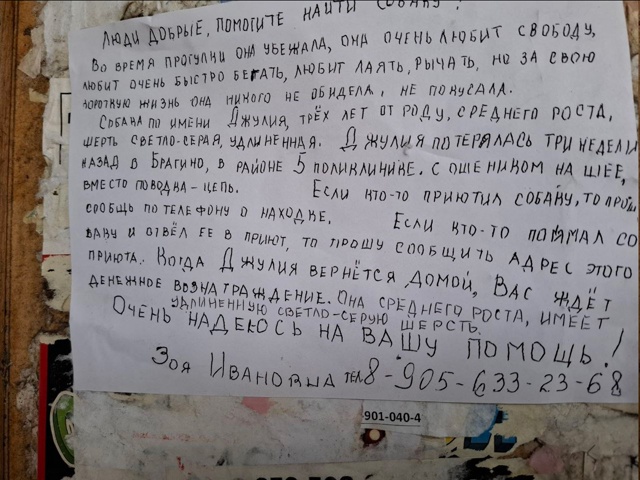 ЛЮДИ ДОБРЫЕ, ПОМОГИТЕ НАЙТИ СОБАКУ!
ВО ВРЕМЯ ПРОГУЛКИ ОНА УБЕЖАЛА, ОНА ОЧЕНЬ ЛЮБИТ СВОБОДУ,
ЛЮБИТ ОЧЕНЬ БЫСТРО БЕГАТЬ, ЛЮБИТ ЛАЯТЬ, РЫЧАТЬ, НО ЗА СВОЮ
КОРОТКУЮ ЖИЗНЬ ОНА НИКОГО НЕ ОБИДЕЛА, НЕ ПОКУСАЛА.
СОБАКА ПО ИМЕНИ ДЖУЛИЯ, ТРЁХ ЛЕТ ОТ РОДУ, СРЕДНЕГО РОСТА,
ШЕРТЬ СВЕТЛО-СЕРАЯ, УДЛИНЕННАЯ. ДЖУЛИЯ ПОТЕРЯЛАСЬ ТРИ НЕДЕЛИ
НАЗАД В БРАГИНО, В РАЙОНЕ 5 ПОЛИКЛИНИКЕ. С ОШЕНИКОМ НА ШЕЕ,
ВМЕСТО ПОВОДКА - ЦЕПЬ. ЕСЛИ КТО-ТО ПРИЮТИЛ СОБАКУ, ТО ПРОШ
СООБЩЬ ПО ТЕЛЕФОНУ О НАХОДКЕ. ЕСЛИ КТО-ТО ПОЙМАЛ СО
БАКУ И ОТВЁЛ ЕЕ В ПРИЮТ, ТО ПРОШУ СООБЩИТЬ АДРЕС ЭТОГО
ПРИЮТА. КОГДА ДЖУЛИЯ ВЕРНЁТСЯ ДОМОЙ, ВАС ЖДЁТ
ДЕНЕЖНОЕ ВОЗНАГРАЖДЕНИЕ. ОНА СРЕДНЕГО РОСТА, ИМЕЕТ
УДЛИНЕННУЮ СВЕТЛО-СЕРУЮ ШЕРСТЬ.
ОЧЕНЬ НАДЕЮСЬ НА ВАШУ ПОМОЩЬ!
ЗОЯ ИВАНОВНА ТЕЛ 8-905-633-23-68
901-040-4